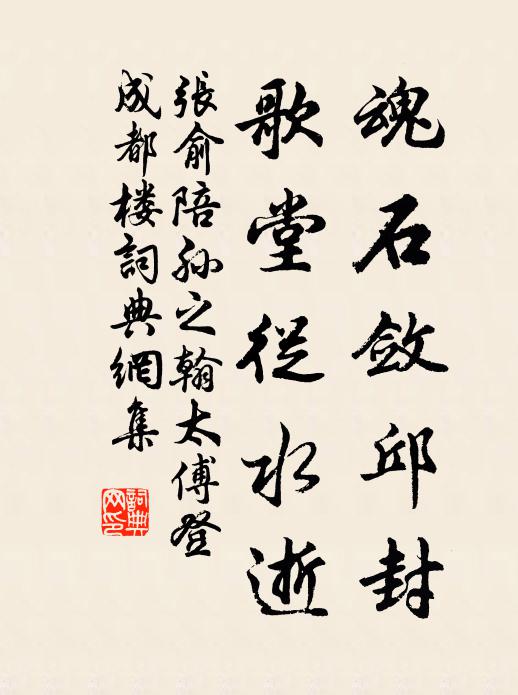 魂石斂邱封
歌堂從水逝
張俞陪孙之翰太傅登
成都楼詞典網集
詞典网印